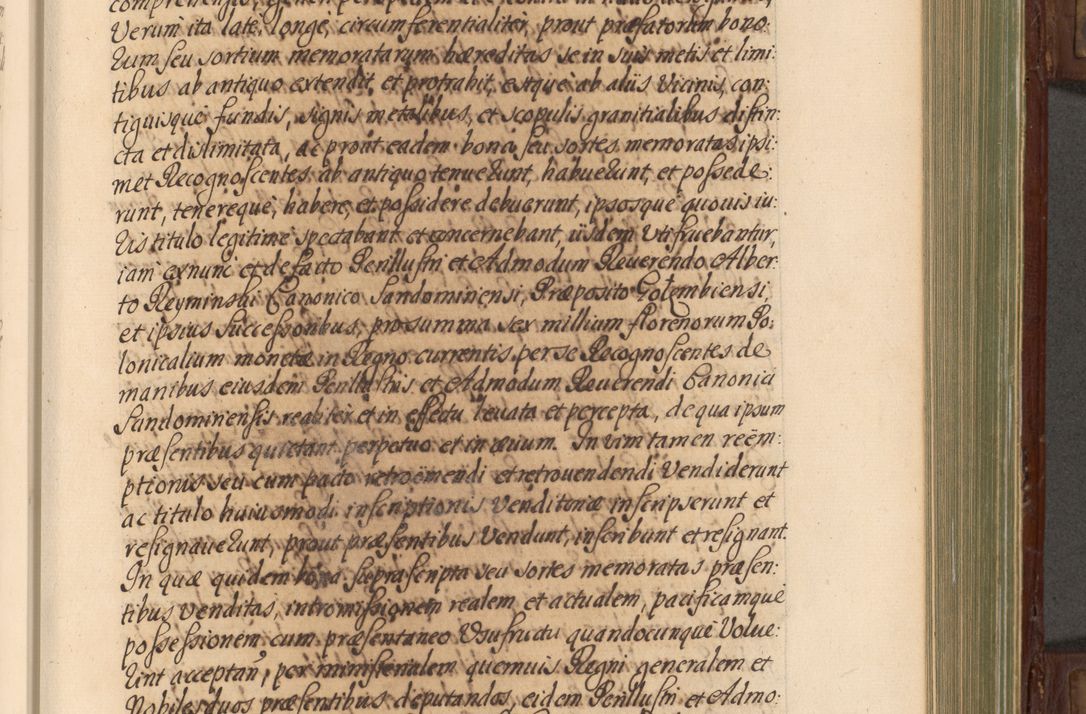 Verum ita late, longe, circumferentialiter, prout præfatorum bono:
rum seu sortium memoratarum hæreditas se in suis metis et limi:
tibus ab antiquo extendit, et protrahit, estque ab aliis vicinis, con:
tiguisque fundis, signis metalibus, et scopulis granitialibus distin:
cta et dislimitata, ac prout eadem bona seu sortes memoratas ipsi:
met Recognoscentes ab antiquo tenuerunt, habuerunt, et possede:
runt, tenereque, habere, et possidere debuerunt, ipsosque quouis iu:
ris titulo legitime spectabant et concernebant, iisdem utifruebantur,
iam exnunc et de facto Perillustri et Admodum Reuerendo Alber
to Reyminski Canonico Sandomiriensi, Præposito Golembiensi,
et ipsius successoribus, pro summa sex millium florenorum Po:
lonicalium monetæ in Regno currentis per se Recognoscentes de
manibus eiusdem Perillustris et Admodum Reuerendi Canonici
Sandomiriensis realiter et in effectu leuata et percepta, de qua ipsum
præsentibus quietant perpetuo et in æuum. In vim tamen reëm:
ptionis seu cum pacto retroëmendi et retrouendendi Vendiderunt
ac titulo huiusmodi inscriptionis Venditoriæ inscripserunt et
resignauerunt, prout præsentibus Vendunt, inscribunt et resignant.
In quæ quidem bona suprascripta seu sortes memoratas præsen:
tibus Venditas, intromissionem realem et actualem, pacificamque
possessionem cum præsentaneo Usufructu quandocunque Volue:
rint acceptañ, per ministerialem quemuis Regni generalem et
Nobiles duos præsentibus deputandos, eidem Perillustri et Admo: